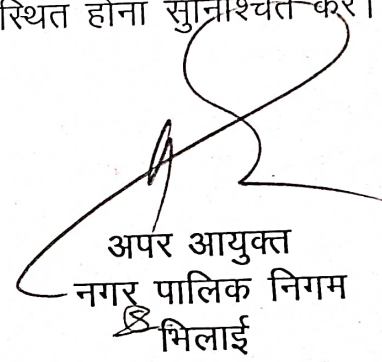 स्थित होना सुनिश्चित करें।
अपर आयुक्त
नगर पालिक निगम
भिलाई